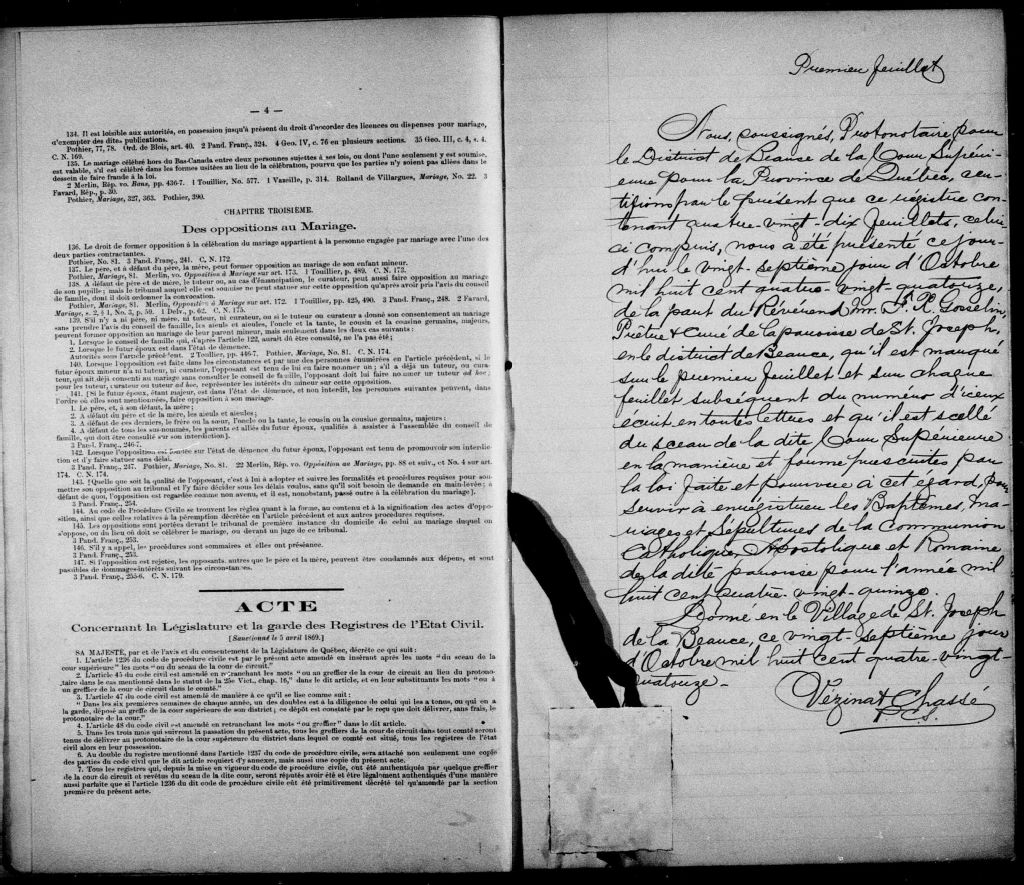 — 4 —
134. Il est loisible aux autorités, en possession jusqu'à présent du droit d'accorder des licences ou dispenses pour mariage,
d'exempter des dites publications.
Pothier, 77, 78. Ord. de Blois, art. 40. 2 Pand. Franç., 324. 4 Geo. IV, c. 76 en plusieurs sections. 35 Geo. III, c. 4, s. 4.
C. N. 169.
135. Le mariage célébré hors du Bas-Canada entre deux personnes sujettes à ses lois, ou dont l'une seulement y est soumise,
est valable, s'il est célébré dans les formes usitées au lieu de la célébration, pourvu que les parties n'y soient pas allées dans le
dessein de faire fraude à la loi.
2 Merlin, Rép. vo. Bans, pp. 436-7. 1 Touillier, No. 577. 1 Vazeille, p. 314. Rolland de Villargues, Mariage, No. 22. 3
Favard, Rép., p. 30.
Pothier, Mariage, 327, 363. Pothier, 390.
CHAPITRE TROISIÈME.
Des oppositions au Mariage.
136. Le droit de former opposition à la célébration du mariage appartient à la personne engagée par mariage avec l'une des
deux parties contractantes.
Pothier, No. 81. 3 Pand. Franç., 241. C. N. 172
137. Le père, et à défaut du père, la mère, peut former opposition au mariage de son enfant mineur.
Pothier, Mariage, 81. Merlin, vo. Opposition à Mariage sur art. 173. 1 Touillier, p. 489. C. N. 173.
138. A défaut de père et de mère, le tuteur ou, au cas d'émancipation, le curateur, peut aussi faire opposition au mariage
de son pupille; mais le tribunal auquel elle est soumise ne peut statuer sur cette opposition qu'après avoir pris l'avis du conseil
de famille, dont il doit ordonner la convocation.
Pothier, Mariage, 81. Merlin, Opposition à Mariage sur art. 172. 1 Touillier, pp. 425, 490. 3 Pand. Franç., 248. 2 Favard,
Mariage, s. 2, § 1, No. 5, p. 59. 1 Delv., p. 62. C. N. 175.
139. S'il n'y a ni père, ni mère, ni tuteur, ni curateur, ou si le tuteur ou curateur a donné son consentement au mariage
sans prendre l'avis du conseil de famille, les aïeuls et aïeules, l'oncle et la tante, le cousin et la cousine germains, majeurs,
peuvent former opposition au mariage de leur parent mineur, mais seulement dans les deux cas suivants:
1. Lorsque le conseil de famille qui, d'après l'article 122, aurait dû être consulté, ne l'a pas été;
2. Lorsque le futur époux est dans l'état de démence.
Autorités sous l'article précédent. 2 Toullier, pp. 446-7. Pothier, Mariage, No. 81. C. N. 174.
140. Lorsque l'opposition est faite dans les circonstances et par une des personnes énumérées en l'article précédent, si le
futur époux mineur n'a ni tuteur, ni curateur, l'opposant est tenu de lui en faire nommer un; s'il a déjà un tuteur, ou cura-
teur, qui ait déjà consenti au mariage sans consulter le conseil de famille, l'opposant doit lui faire nommer un tuteur ad hoc;
pour les tuteur, curateur ou tuteur ad hoc, représenter les intérêts du mineur sur cette opposition.
141. [Si le futur époux, étant majeur, est dans l'état de démence, et non interdit, les personnes suivantes peuvent, dans
l'ordre où elles sont mentionnées, faire opposition à son mariage.
1. Le père, et, à son défaut, la mère;
2. A défaut du père et de la mère, les aïeuls et aïeules;
3. A défaut de ces derniers, le frère ou la sœur, l'oncle ou la tante, le cousin ou la cousine germains, majeurs;
4. A défaut de tous les sus-nommés, les parents et alliés du futur époux, qualifiés à assister à l'assemblée du conseil de
famille, qui doit être consulté sur son interdiction].
3 Pand. Franç., 246-7.
142. Lorsque l'opposition est fondée sur l'état de démence du futur époux, l'opposant est tenu de promouvoir son interdic-
tion et d'y faire statuer sans délai.
3 Pand. Franç., 247. Pothier, Mariage, No. 81. 22 Merlin, Rép. vo. Opposition au Mariage, pp. 88 et suiv., et No. 4 sur art.
174. C. N. 174.
143. [Quelle que soit la qualité de l'opposant, c'est à lui à adopter et suivre les formalités et procédures requises pour sou-
mettre son opposition au tribunal et l'y faire décider sous les délais voulus, sans qu'il soit besoin de demande en main-levée; à
défaut de quoi, l'opposition est regardée comme non avenu, et il est, nonobstant, passé outre à la célébration du mariage].
3 Pand. Franç., 254.
144. Au code de Procédure Civile se trouvent les règles quant à la forme, au contenu et à la signification des actes d'oppo-
sition, ainsi que celles relatives à la péremption décrétée en l'article précédent et aux autres procédures requises.
145. Les oppositions sont portées devant le tribunal de première instance du domicile de celui au mariage duquel on
s'oppose, ou du lieu où doit se célébrer le mariage, ou devant un juge de ce tribunal.
3 Pand. Franç., 253.
146. S'il y a appel, les procédures sont sommaires et elles ont préséance.
3 Pand. Franç., 253.
147. Si l'opposition est rejetée, les opposants, autres que le père et la mère, peuvent être condamnés aux dépens, et sont
passibles de dommages-intérêts suivant les circonstances.
3 Pand. Franç., 255-6. C. N. 179.
ACTE
Concernant la Législature et la garde des Registres de l'Etat Civil.
[Sanctionné le 5 avril 1869.]
SA MAJESTÉ, par et de l'avis et du consentement de la Législature de Québec, décrète ce qui suit:
1. L'article 1236 du code de procédure civile est par le présent acte amendé en insérant après les mots "du sceau de la
cour supérieure" les mots "ou du sceau de la cour de circuit."
2. L'article 45 du code civil est amendé en retranchant les mots "ou au greffier de la cour de circuit au lieu du protono-
taire dans le cas mentionné dans le statut de la 25e Vict., chap. 16," dans le dit article, et en leur substituants les mots "ou à
un greffier de la cour de circuit dans le comté."
3. L'article 47 du code civil est amendé de manière à ce qu'il se lise comme suit:
"Dans les six premières semaines de chaque année, un des doubles est à la diligence de celui qui les a tenus, ou qui en a
la garde, déposé au greffe de la cour supérieure de son district; ce dépôt est constaté par le reçu que doit délivrer, sans frais, le
protonotaire de la cour."
4. L'article 48 du code civil est amendé en retranchant les mots "ou greffier" dans le dit article.
5. Dans les trois mois qui suivront la passation du présent acte, tous les greffiers de la cour de circuit dans tout comté seront
tenus de délivrer au protonotaire de la cour supérieure du district dans lequel ce comté est situé, tous les registres de l'état
civil alors en leur possession.
6. Au double du registre mentionné dans l'article 1237 du code de procédure civile, sera attaché non seulement une copie
des parties du code civil que le dit article requiert d'y annexer, mais aussi une copie du présent acte.
7. Tous les registres qui, depuis la mise en vigueur du code de procédure civile, ont été authentiqués par quelque greffier
de la cour de circuit et revêtus du sceau de la dite cour, seront réputés avoir été et être légalement authentiqués d'une manière
aussi parfaite que si l'article 1236 du dit code de procédure civile eût été primitivement décrété tel qu'amendé par la section
première du présent acte.
Premier feuillet
Nous, soussignés, Protonotaire pour
le District de Beauce de la Cour Supéri-
eure pour la Province de Québec, cer-
tifions par le présent que ce régistre con-
tenant quatre-vingt-dix feuillets, celui
ci compris, nous a été présenté ce jour-
d'hui le vingt-septième jour d'Octobre
mil huit cent quatre-vingt-quatorze,
de la part du Révérend Mr. Gosselin,
Prêtre & Curé de la paroisse de St. Joseph,
en le district de Beauce, qu'il est marqué
sur le premier feuillet et sur chaque
feuillet subséquent du numéro d'iceux
écrit en toutes lettres et qu'il est scellé
du sceau de la dite Cour Supérieure
en la manière et forme prescrites par
la loi faite et pourvue à cet égard, pour
servir à enrégistrer les Baptêmes, ma-
riages et Sépultures de la Communion
Catholique, Apostolique et Romaine
de la dite paroisse pour l'année mil
huit cent quatre-vingt-quinze.
Donné en le Village de St. Joseph
de la Beauce, ce vingt-septième jour
d'Octobre mil huit cent quatre-vingt-
quatorze.
Vézina & Chassé
P. C. S.